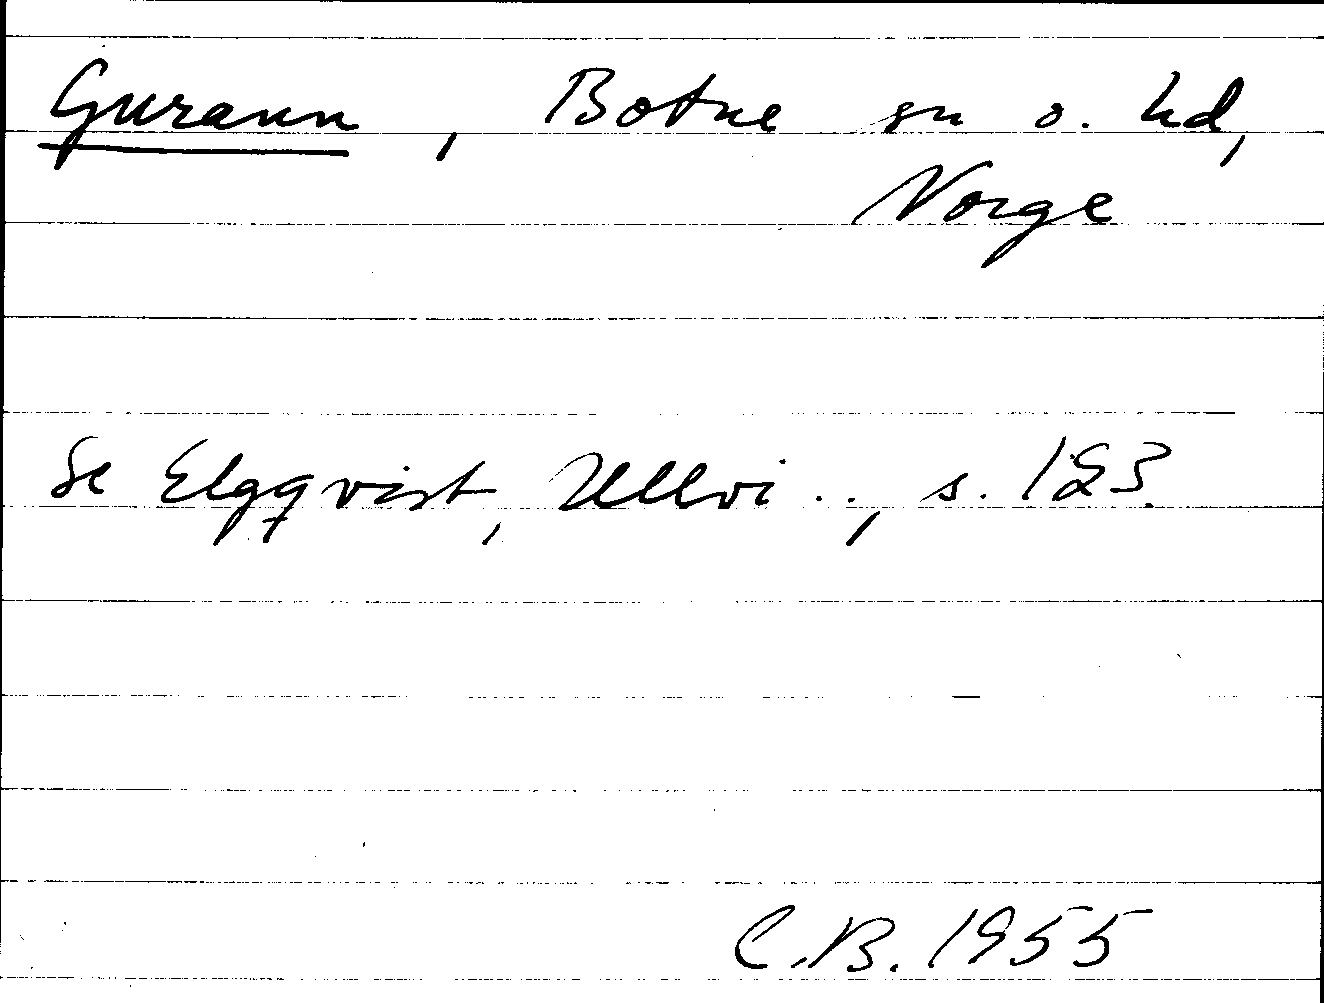 Gurann, Botne sn o. hd,
Norge
Se Elgqvist, Ullvi .., s. 123.
C.B. 1955